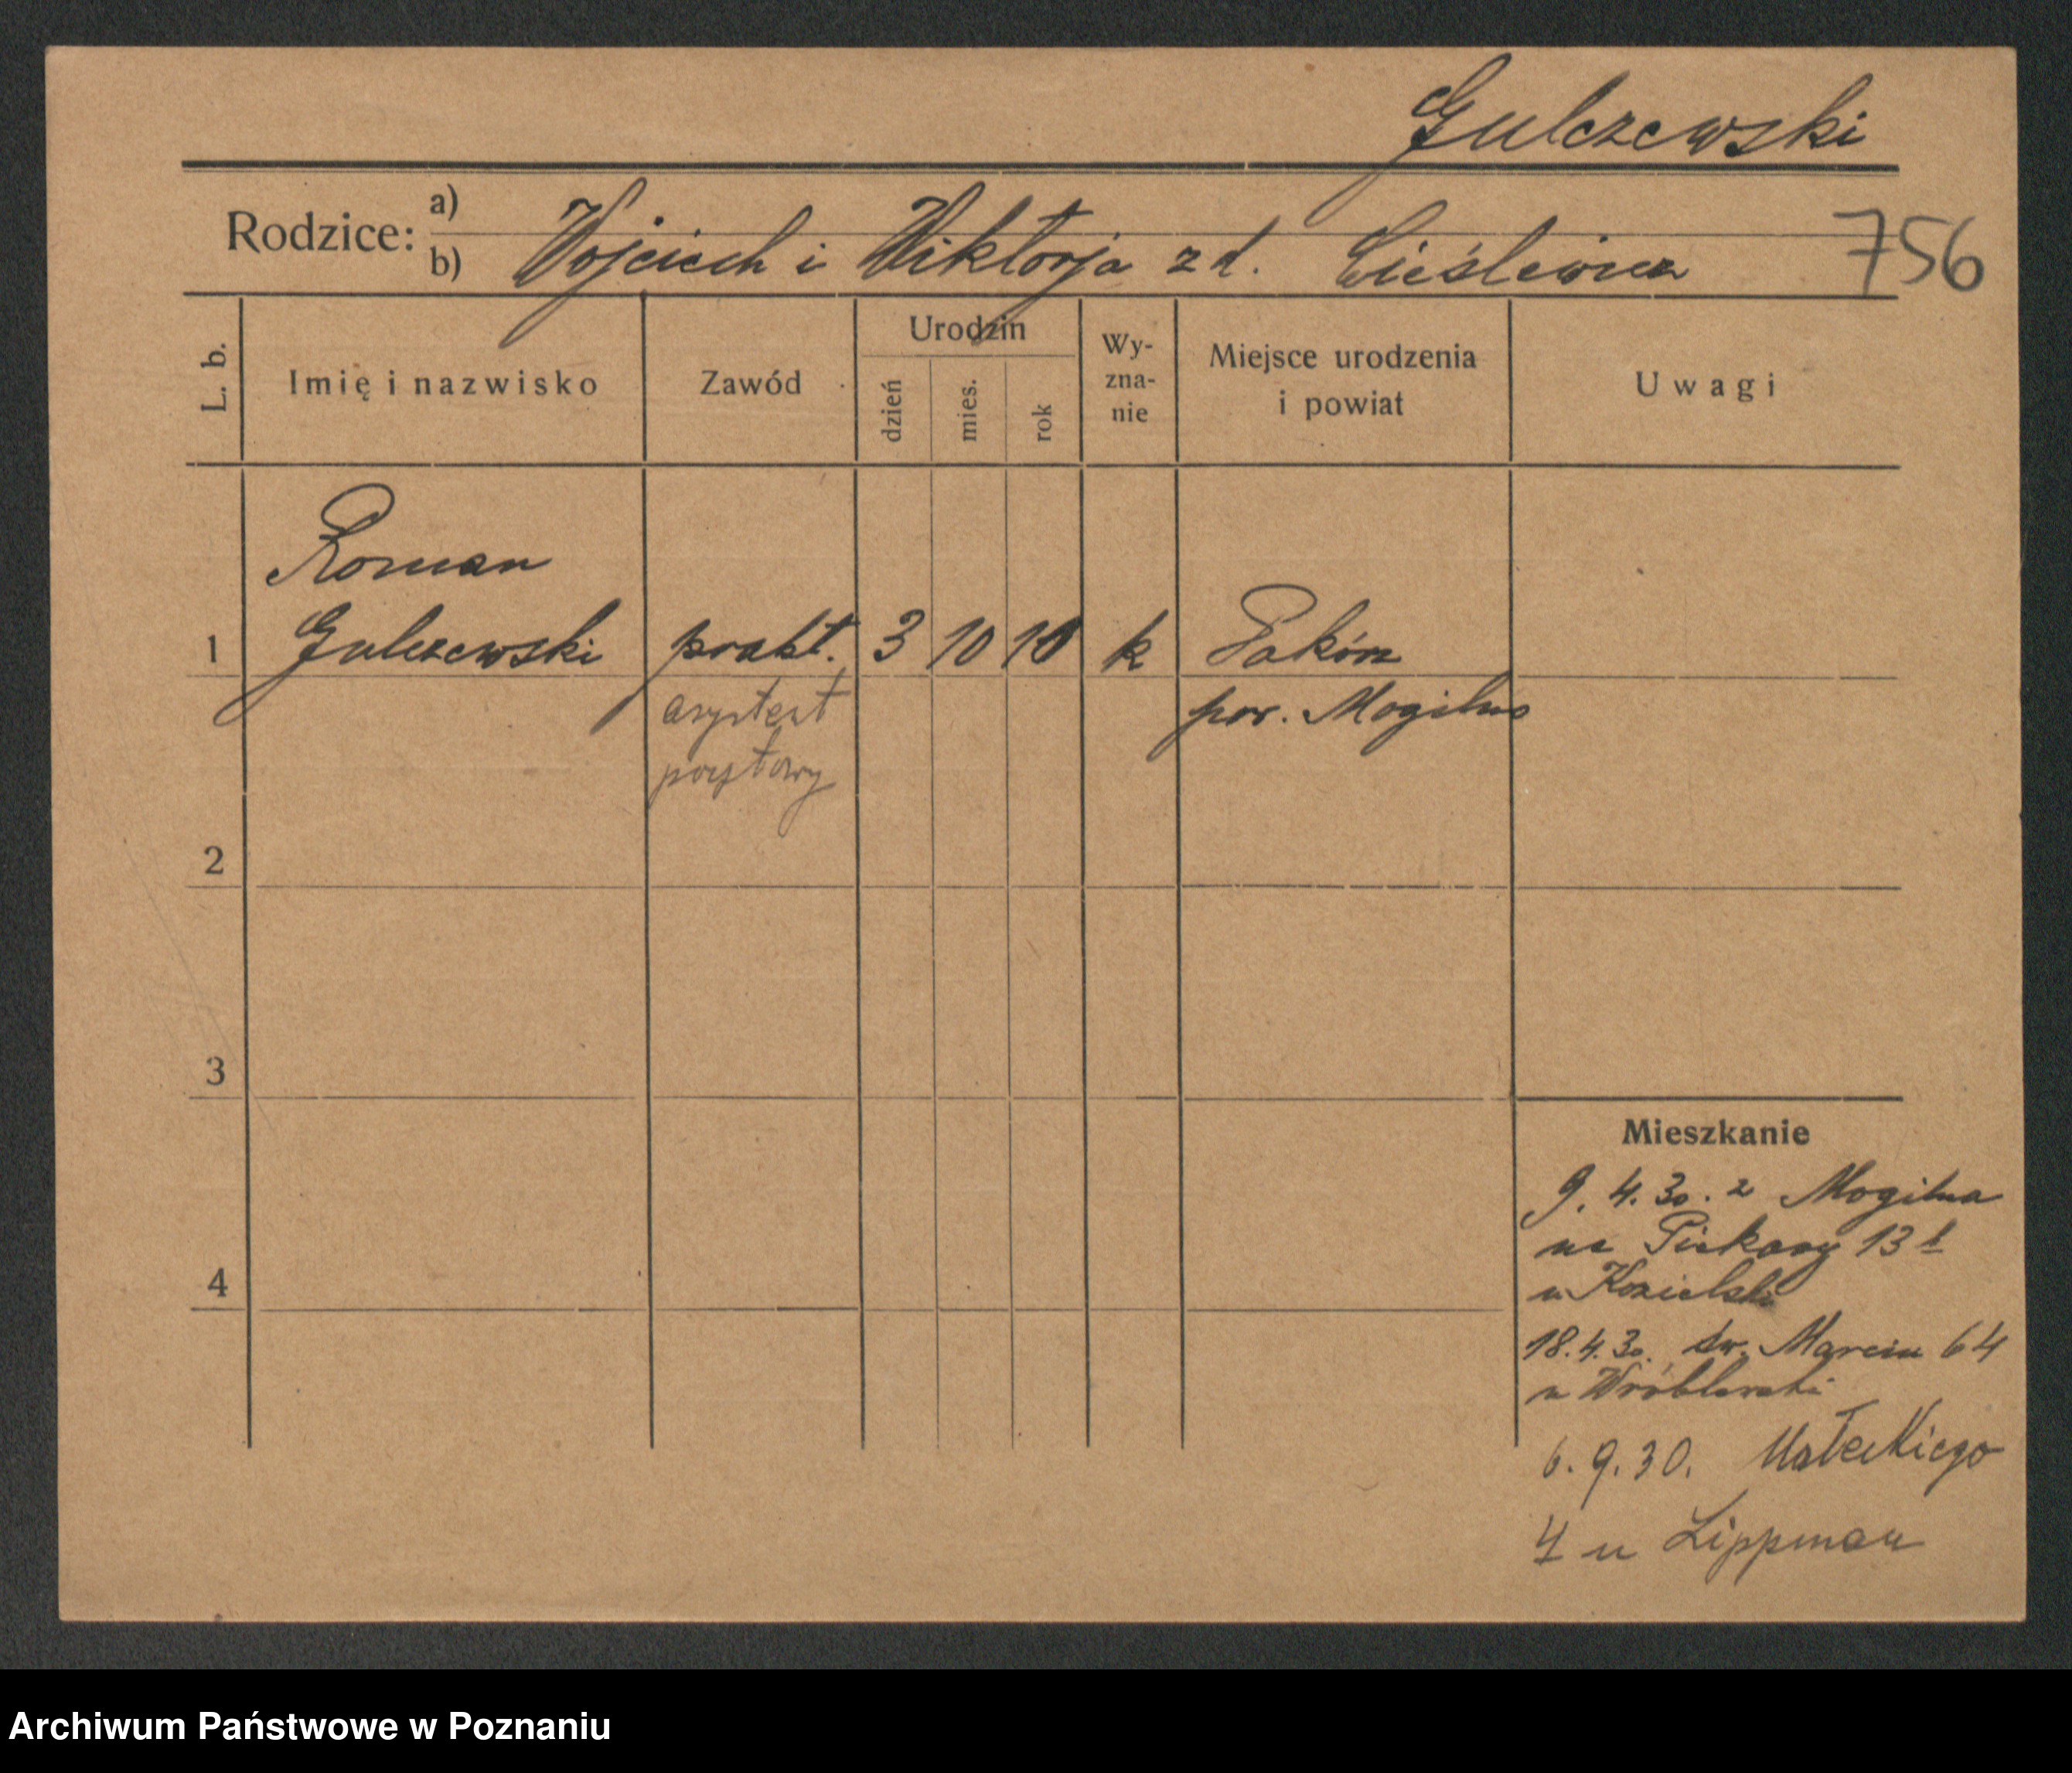 Gulczewski
Rodzice: a)
b) Wojciech i Wiktorja z d. Cieślewicz 756
L. b. Imię i nazwisko Zawód Urodzin dzień mies. rok Wy-zna-nie Miejsce urodzenia i powiat Uwagi
Roman
1 Gulczewski prakt. 3 10 10 k Pakość
asystent pow. Mogilno
pocztowy
2
3
Mieszkanie
9. 4. 30. z Mogilna
na Piekary 13
4
u Kozielski
18. 4. 30. św. Marcin 64
u Wróblewski
6. 9. 30. Małeckiego
4 u Lippman
Archiwum Państwowe w Poznaniu